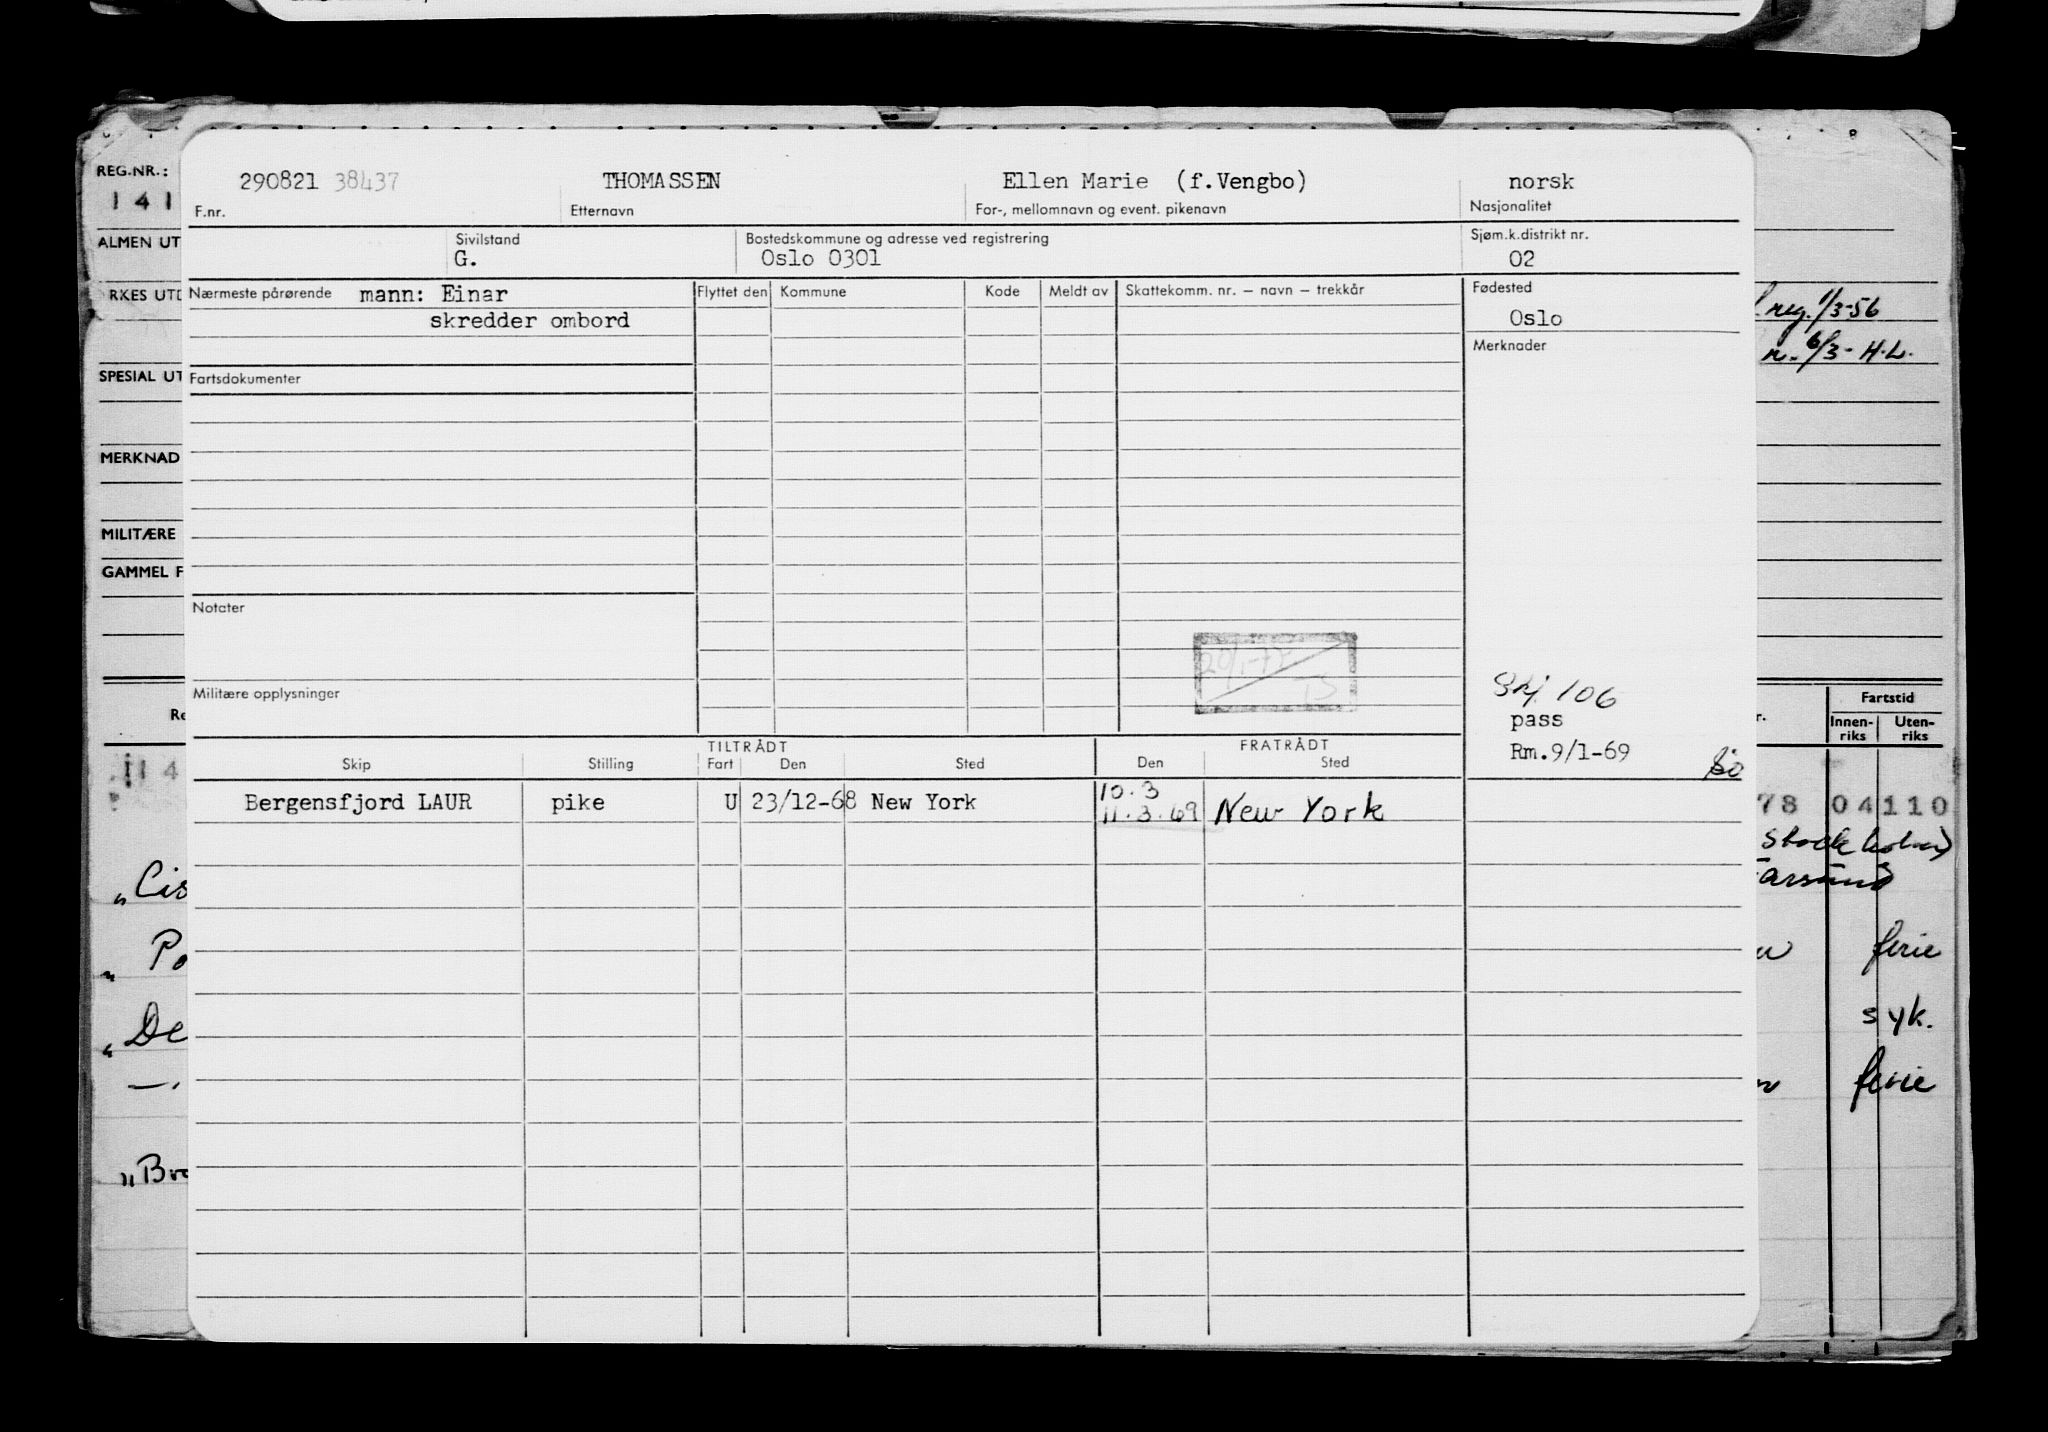 REG.NR.:
141
ALMEN UT
RKES UTD
SPESIAL UT
MERKNAD
MILITÆRE
GAMMEL F
290821 38437 THOMASSEN Ellen Marie (f.Vengbo) norsk
F.nr. Etternavn For-, mellomnavn og event. pikenavn Nasjonalitet
Sivilstand Bostedskommune og adresse ved registrering Sjøm.k.distrikt nr.
G. Oslo 0301 02
Nærmeste pårørende mann: Einar Flyttet den Kommune Kode Meldt av Skattekomm. nr. – navn – trekkår Fødested
skredder ombord Oslo
Merknader
Fartsdokumenter
Notater
Militære opplysninger
106
pass
Rm.9/1-69
TILTRÅDT FRATRÅDT
Skip Stilling Fart Den Sted Den Sted
Bergensfjord LAUR pike U 23/12-68 New York 10.3 11.3.69 New York
reg. 1/3-56
6/3- H.L.
Fartstid
Innen-riks Uten-riks
78 04110
Stockholm)
ferie
syk.
ferie
„Cis
„ Po
„ De
„Bro